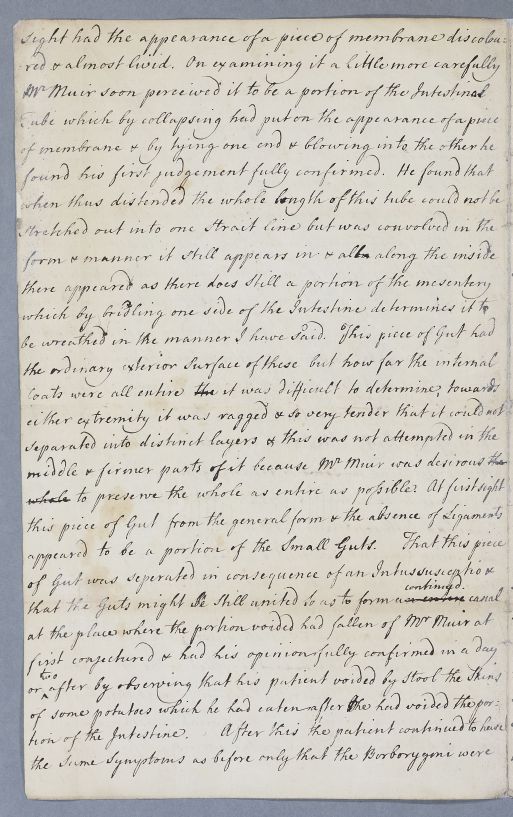 sight had the appearance of a piece of membrane discolou:
:red & almost livid. On examining it a little more carefully
Mr Muir soon perceived it to be a portion of the Intestinal
Tube which by collapsing had put on the appearance of a piece
of membrane & by tying one end & blowing into the other he
found his first judgement fully confirmed. He found that
when thus distended the whole length of this tube could not be
stretched out into one strait line but was convolved in the
form & manner it still appears in & all along the inside
there appeared as there does still a portion of the mesentery
which by bridling one side of the Intestine determines it to
be wreathed in the manner I have said. This piece of Gut had
the ordinary exterior surface of these but how far the internal
Coats were all entire the it was difficult to determine, towards
either extremity it was ragged & so very tender that it could not
separated into distinct layers & this was not attempted in the
middle & firmer parts of it because Mr Muir was desirous the
whole to preserve the whole as entire as possible. At first sight
this piece of Gut from the general form & the absence of Ligaments
appeared to be a portion of the Small Guts. That this piece
of Gut was seperated in consequence of an Intussusceptio &
that the Guts might be still united so as to form a continued canal
at the place where the portion voided had fallen off Mr Muir at
first conjectured & had his opinion fully confirmed in a day
or two after by observing that his patient voided by stool the Skins
of some potatoes which he had eaten after he had voided the por:
tion of the Intestine. After this the patient continued to have
the same symptoms as before only that the Borborygmi were